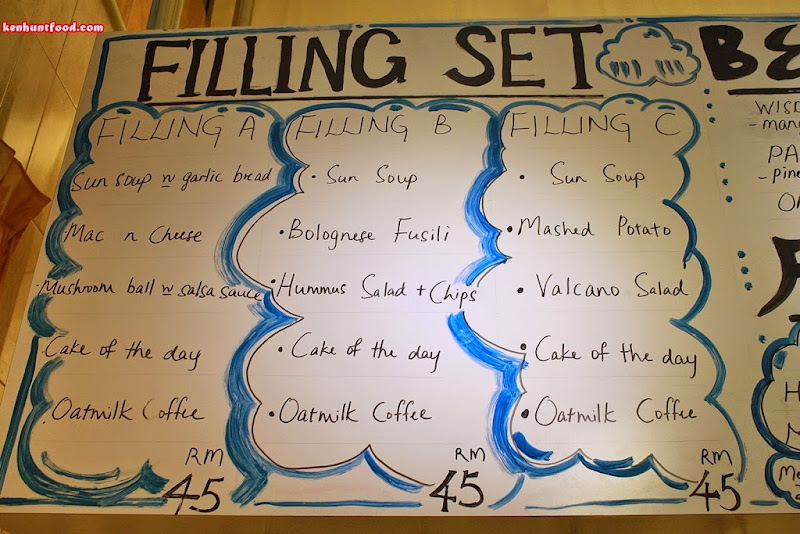 kenhuntfood.com
FILLING SET
FILLING A
Sun soup w garlic bread
Mac n Cheese
• Mushroom ball w salsa sauce
• Cake of the day
• Oatmilk Coffee
RM
45
FILLING B
• Sun Soup
• Bolognese Fusili
• Hummus Salad + Chips
• Cake of the day
• Oatmilk Coffee
RM
45
FILLING C
• Sun Soup
• Mashed Potato
• Valcano Salad
• Cake of the day
• Oatmilk Coffee
RM
45
BE
WISD
- man
PA
- pine